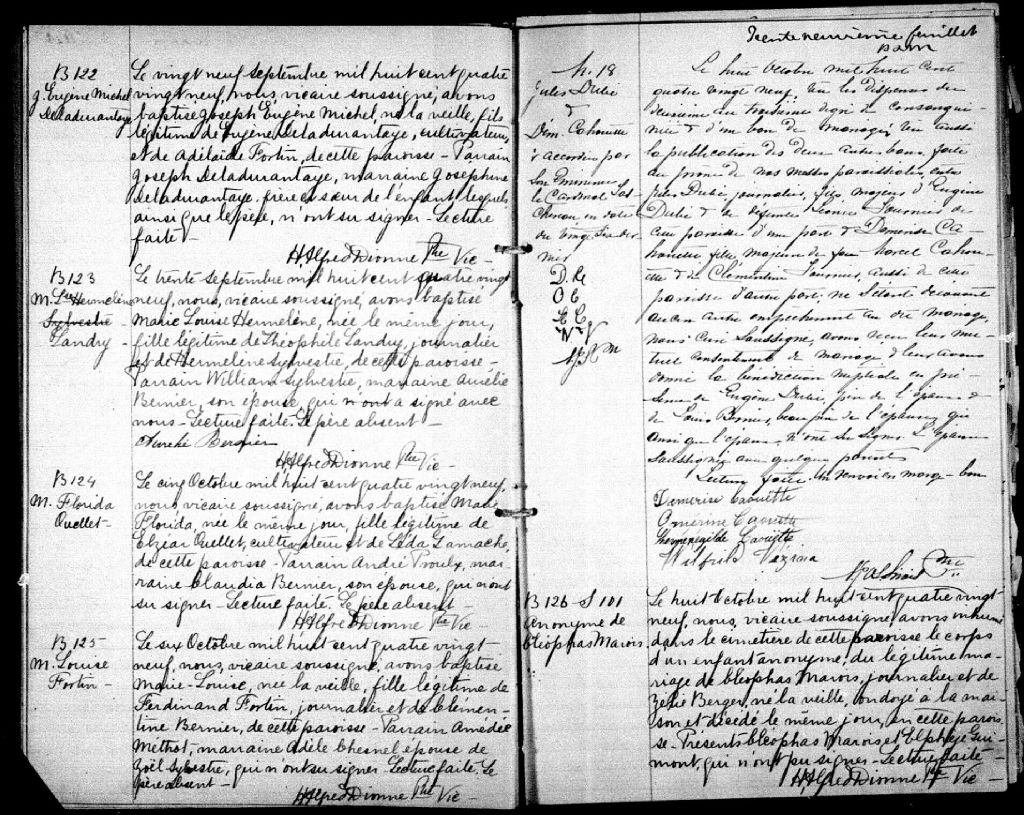 B 122
J. Eugène Michel
Deladurantaye
Le vingt neuf septembre mil huit cent quatre
vingt neuf, nous, vicaire soussigné, avons
baptisé Joseph Eugène Michel, né la veille, fils
légitime de Eugène Deladurantaye, cultivateur,
et de Adélaide Fortin, de cette paroisse - Parrain
Joseph Deladurantaye, marraine Josephine
Deladurantaye, frère et sœur de l'enfant lesquels
ainsi que le père, n'ont su signer - Lecture
faite -
H. Alfred Dionne Ptre Vic -
B 123
M. Lse Hermeline
Sylvestre -
Landry -
Le trente septembre mil huit cent quatre vingt
neuf, nous, vicaire soussigné, avons baptisé
Marie Louise Hermelène, née le même jour,
fille légitime de Théophile Landry, journalier
et de Hermeline Sylvestre, de cette paroisse -
Parrain William Sylvestre, marraine Aurélie
Bernier, son épouse, qui a signé avec
nous - Lecture faite. Le père absent -
Aurelie Bernier
H. Alfred Dionne Ptre Vic -
B 124
M. Florida
Ouellet -
Le cinq Octobre mil huit cent quatre vingt neuf,
nous, vicaire soussigné, avons baptisé Marie
Florida, née le même jour, fille légitime de
Elzéar Ouellet, cultivateur et de Léda Gamache,
de cette paroisse - Parrain André Proulx, mar-
raine Claudia Bernier, son épouse, qui n'ont
su signer - Lecture faite. Le père absent -
H. Alfred Dionne Ptre Vic -
B 125
M. Louise
Fortin -
Le six Octobre mil huit cent quatre vingt
neuf, nous, vicaire soussigné, avons baptisé
Marie-Louise, née la veille, fille légitime de
Ferdinand Fortin, journalier et de Clémen-
tine Bernier, de cette paroisse - Parrain Amédée
Méthot, marraine Adèle Chesnel épouse de
Zoël Sylvestre, qui n'ont su signer - Lecture faite. Le
père absent -
H. Alfred Dionne Ptre Vic -
Trente neuvième feuillet
M. 18
Jules Dubé
&
Dém. Cahouette
accordées par
Son Eminence
le Cardinal Tas-
chereau en date
du vingt
Le huit Octobre mil huit cent
quatre vingt neuf, vu les dispenses du
deuxième au troisième degré de consangui-
nité & d'un ban de mariage, vu aussi
la publication des deux autres bans, faite
au prône de nos messes paroissiales, entre
Jules Dubé, journalier, fils majeur d'Eugène
Dubé & de défunte Fournier de
cette paroisse d'une part & Démérise Ca-
houette fille majeure de feu Marcel Cahou-
ette & de Clémentine Fournier, aussi de cette
paroisse d'autre part, ne s'étant découvert
aucun autre empêchement au dit mariage,
nous Curé Soussigné, avons reçu leur mu-
tuel consentement de mariage & leur avons
donné la bénédiction nuptiale en pré-
sence de Eugène Dubé, père de l'époux &
de Louis Bernier, beau-père de l'épouse, qui
ainsi que l'époux n'ont su signer. L'épouse
Soussignée avec quelques parents
Lecture faite. Un renvoi en marge - bon
Demerise Caouette
Omérine Caouette
Hermenegilde Caouette
Wilfrid Vezina
B 126 - S 101
Anonyme de
Cléophas Marois
Le huit Octobre mil huit cent quatre vingt
neuf, nous, vicaire soussigné avons inhumé
dans le cimetière de cette paroisse le corps
d'un enfant anonyme, du légitime ma-
riage de Cléophas Marois, journalier et de
Zélie Berger, né la veille, ondoyé à la mai-
son et décédé le même jour, en cette parois-
se - Présents Cléophas Marois et Elphège Gui-
mont, qui n'ont pu signer - Lecture faite -
H. Alfred Dionne Ptre Vic -